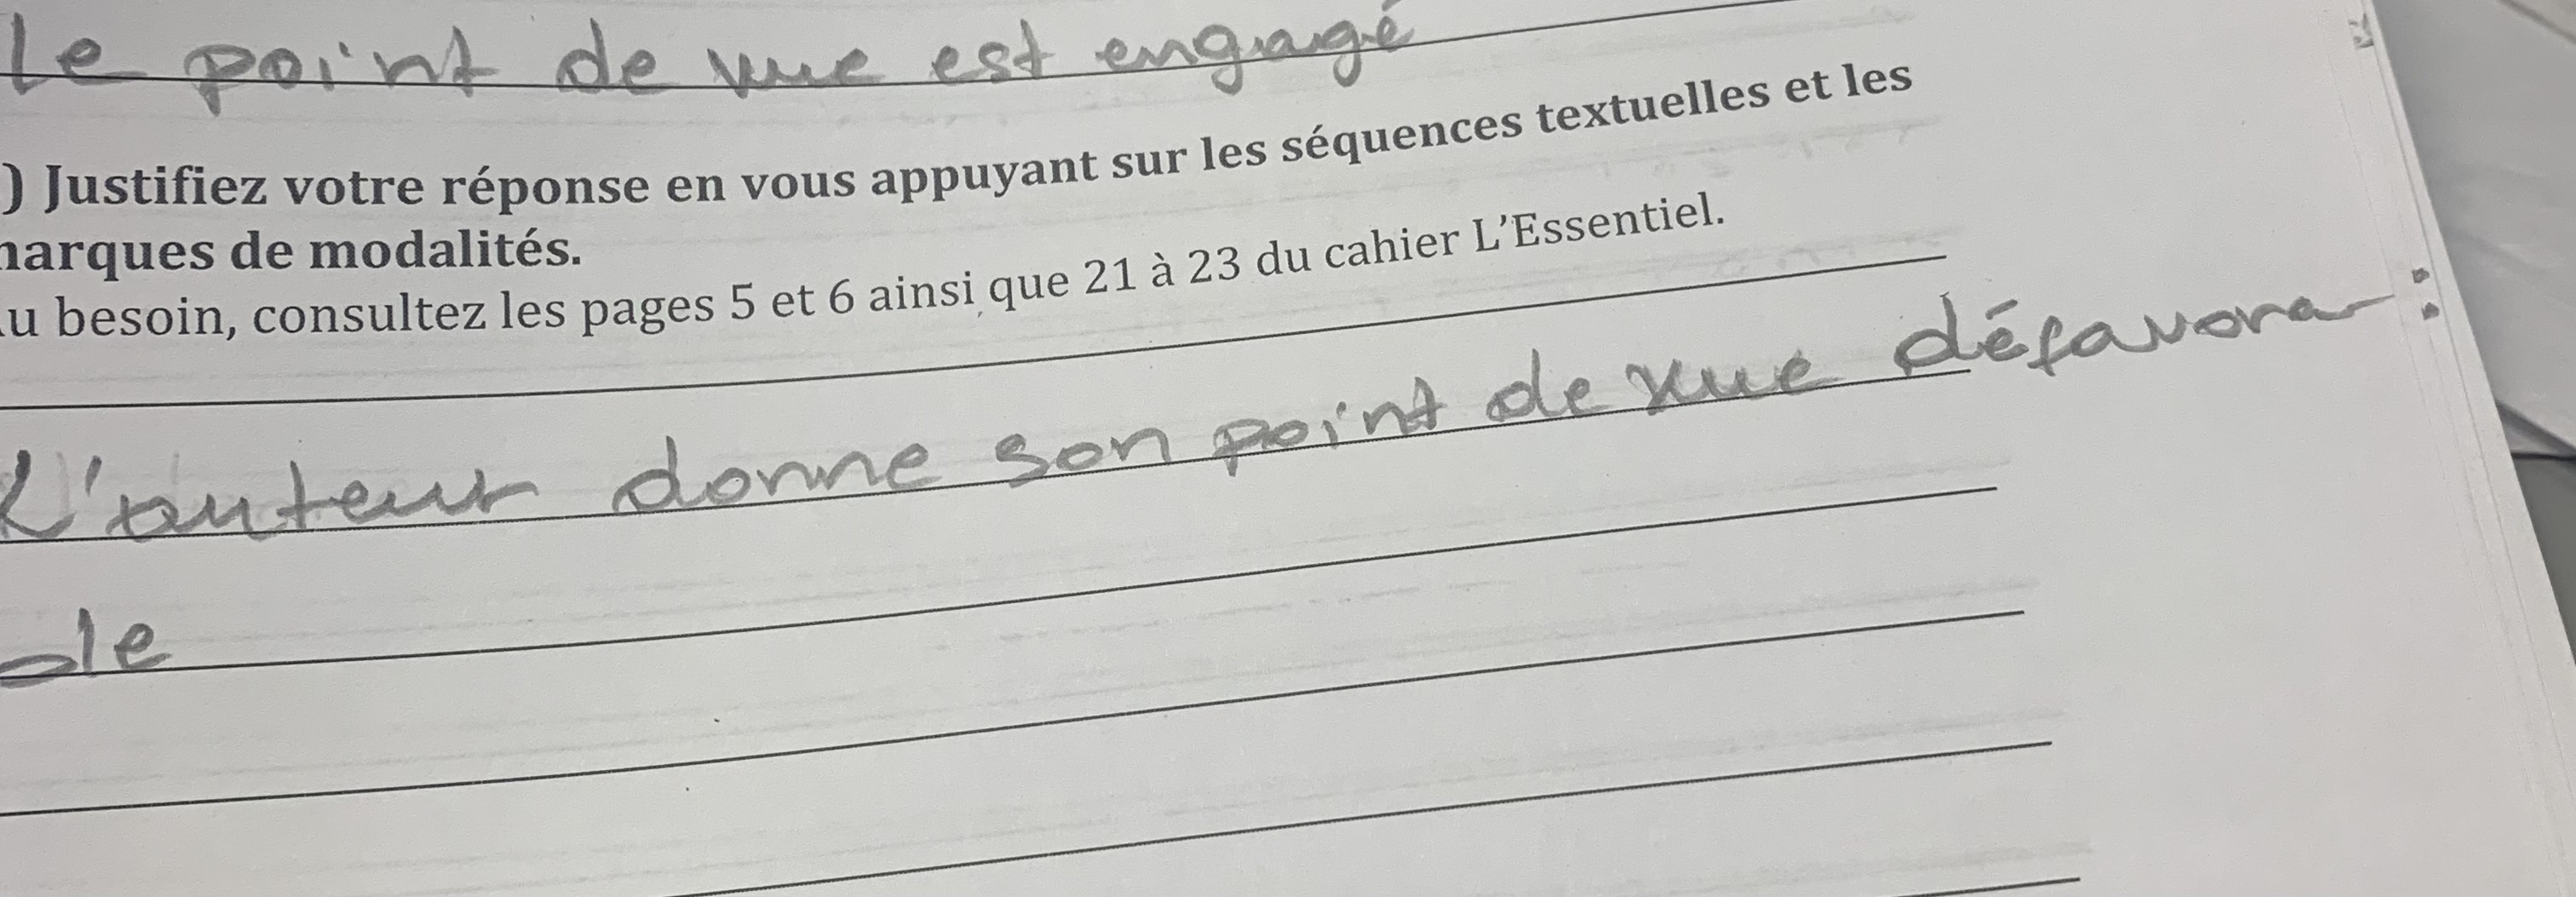 Le point de vue est engagé
) Justifiez votre réponse en vous appuyant sur les séquences textuelles et les
marques de modalités.
u besoin, consultez les pages 5 et 6 ainsi que 21 à 23 du cahier L'Essentiel.
L'auteur donne son point de vue défavora-
ble